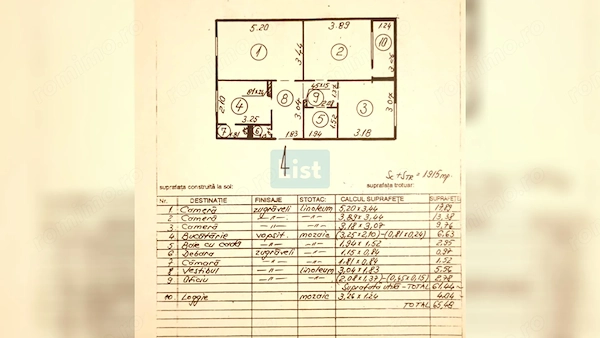 5.20
3.89
1.24
1
3.44
2
10
3.26
2.10
81x24
4
8
3.04
45x15
9
1.37
3
3.07
3.25
7
1.81
6
1.83
5
1.94
1.52
3.18
List
Sc + STR = 1915mp.
suprafața construită la sol:
suprafața trotuar:
Nr. DESTINAȚIE FINISAJE STOTAC: CALCUL SUPRAFEȚE SUPRAFEȚE
1 Cameră zugrăveli linoleum 5,20 x 3,44 17.89
2 Cameră —"— —"— 3,89 x 3,44 13,38
3 Cameră —"— —"— 3,18 x 3,07 9,76
4 Bucătărie vopsit. mozaic (3,25x2,10)-(0,81x0,24) 6,63
5 Baie cu cadă —"— —"— 1,94 x 1,52 2,95
6 Debara zugrăveli —"— 1,15 x 0,84 0,97
7 Cămară —"— —"— 1,81 x 0,84 1,52
8 Vestibul —"— linoleum 3,04 x 1,83 5,56
9 Oficiu —"— —"— (2,08x1,37)-(0,45x0,15) 2,78
Suprafața utilă - TOTAL 61,44
10 Loggie mozaic 3,26 x 1.24 4,04
TOTAL 65,48